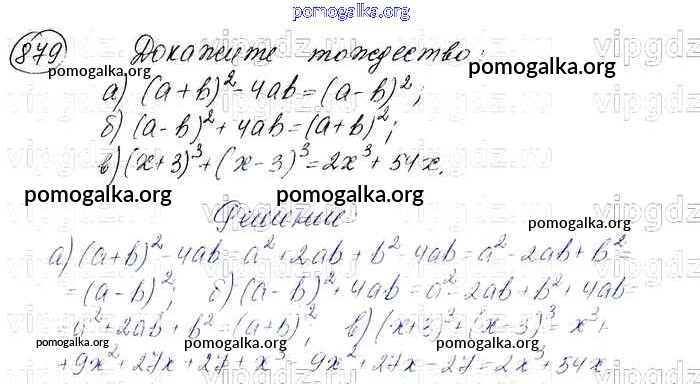 pomogalka.org
879 Докажите тождество:
pomogalka.org pomogalka.org
а) (a+b)² - 4ab = (a-b)²;
б) (a-b)² + 4ab = (a+b)²;
в) (x+3)³ + (x-3)³ = 2x³ + 54x.
pomogalka.org pomogalka.org
Решение
pomogalka.org
а) (a+b)² - 4ab = a² + 2ab + b² - 4ab = a² - 2ab + b² =
= (a-b)²; б) (a-b)² + 4ab = a² - 2ab + b² + 4ab =
= a² + 2ab + b² = (a+b)²; в) (x+3)³ + (x-3)³ = x³ +
pomogalka.org pomogalka.org
+ 9x² + 27x + 27 + x³ - 9x² + 27x - 27 = 2x³ + 54x
pomogalka.org